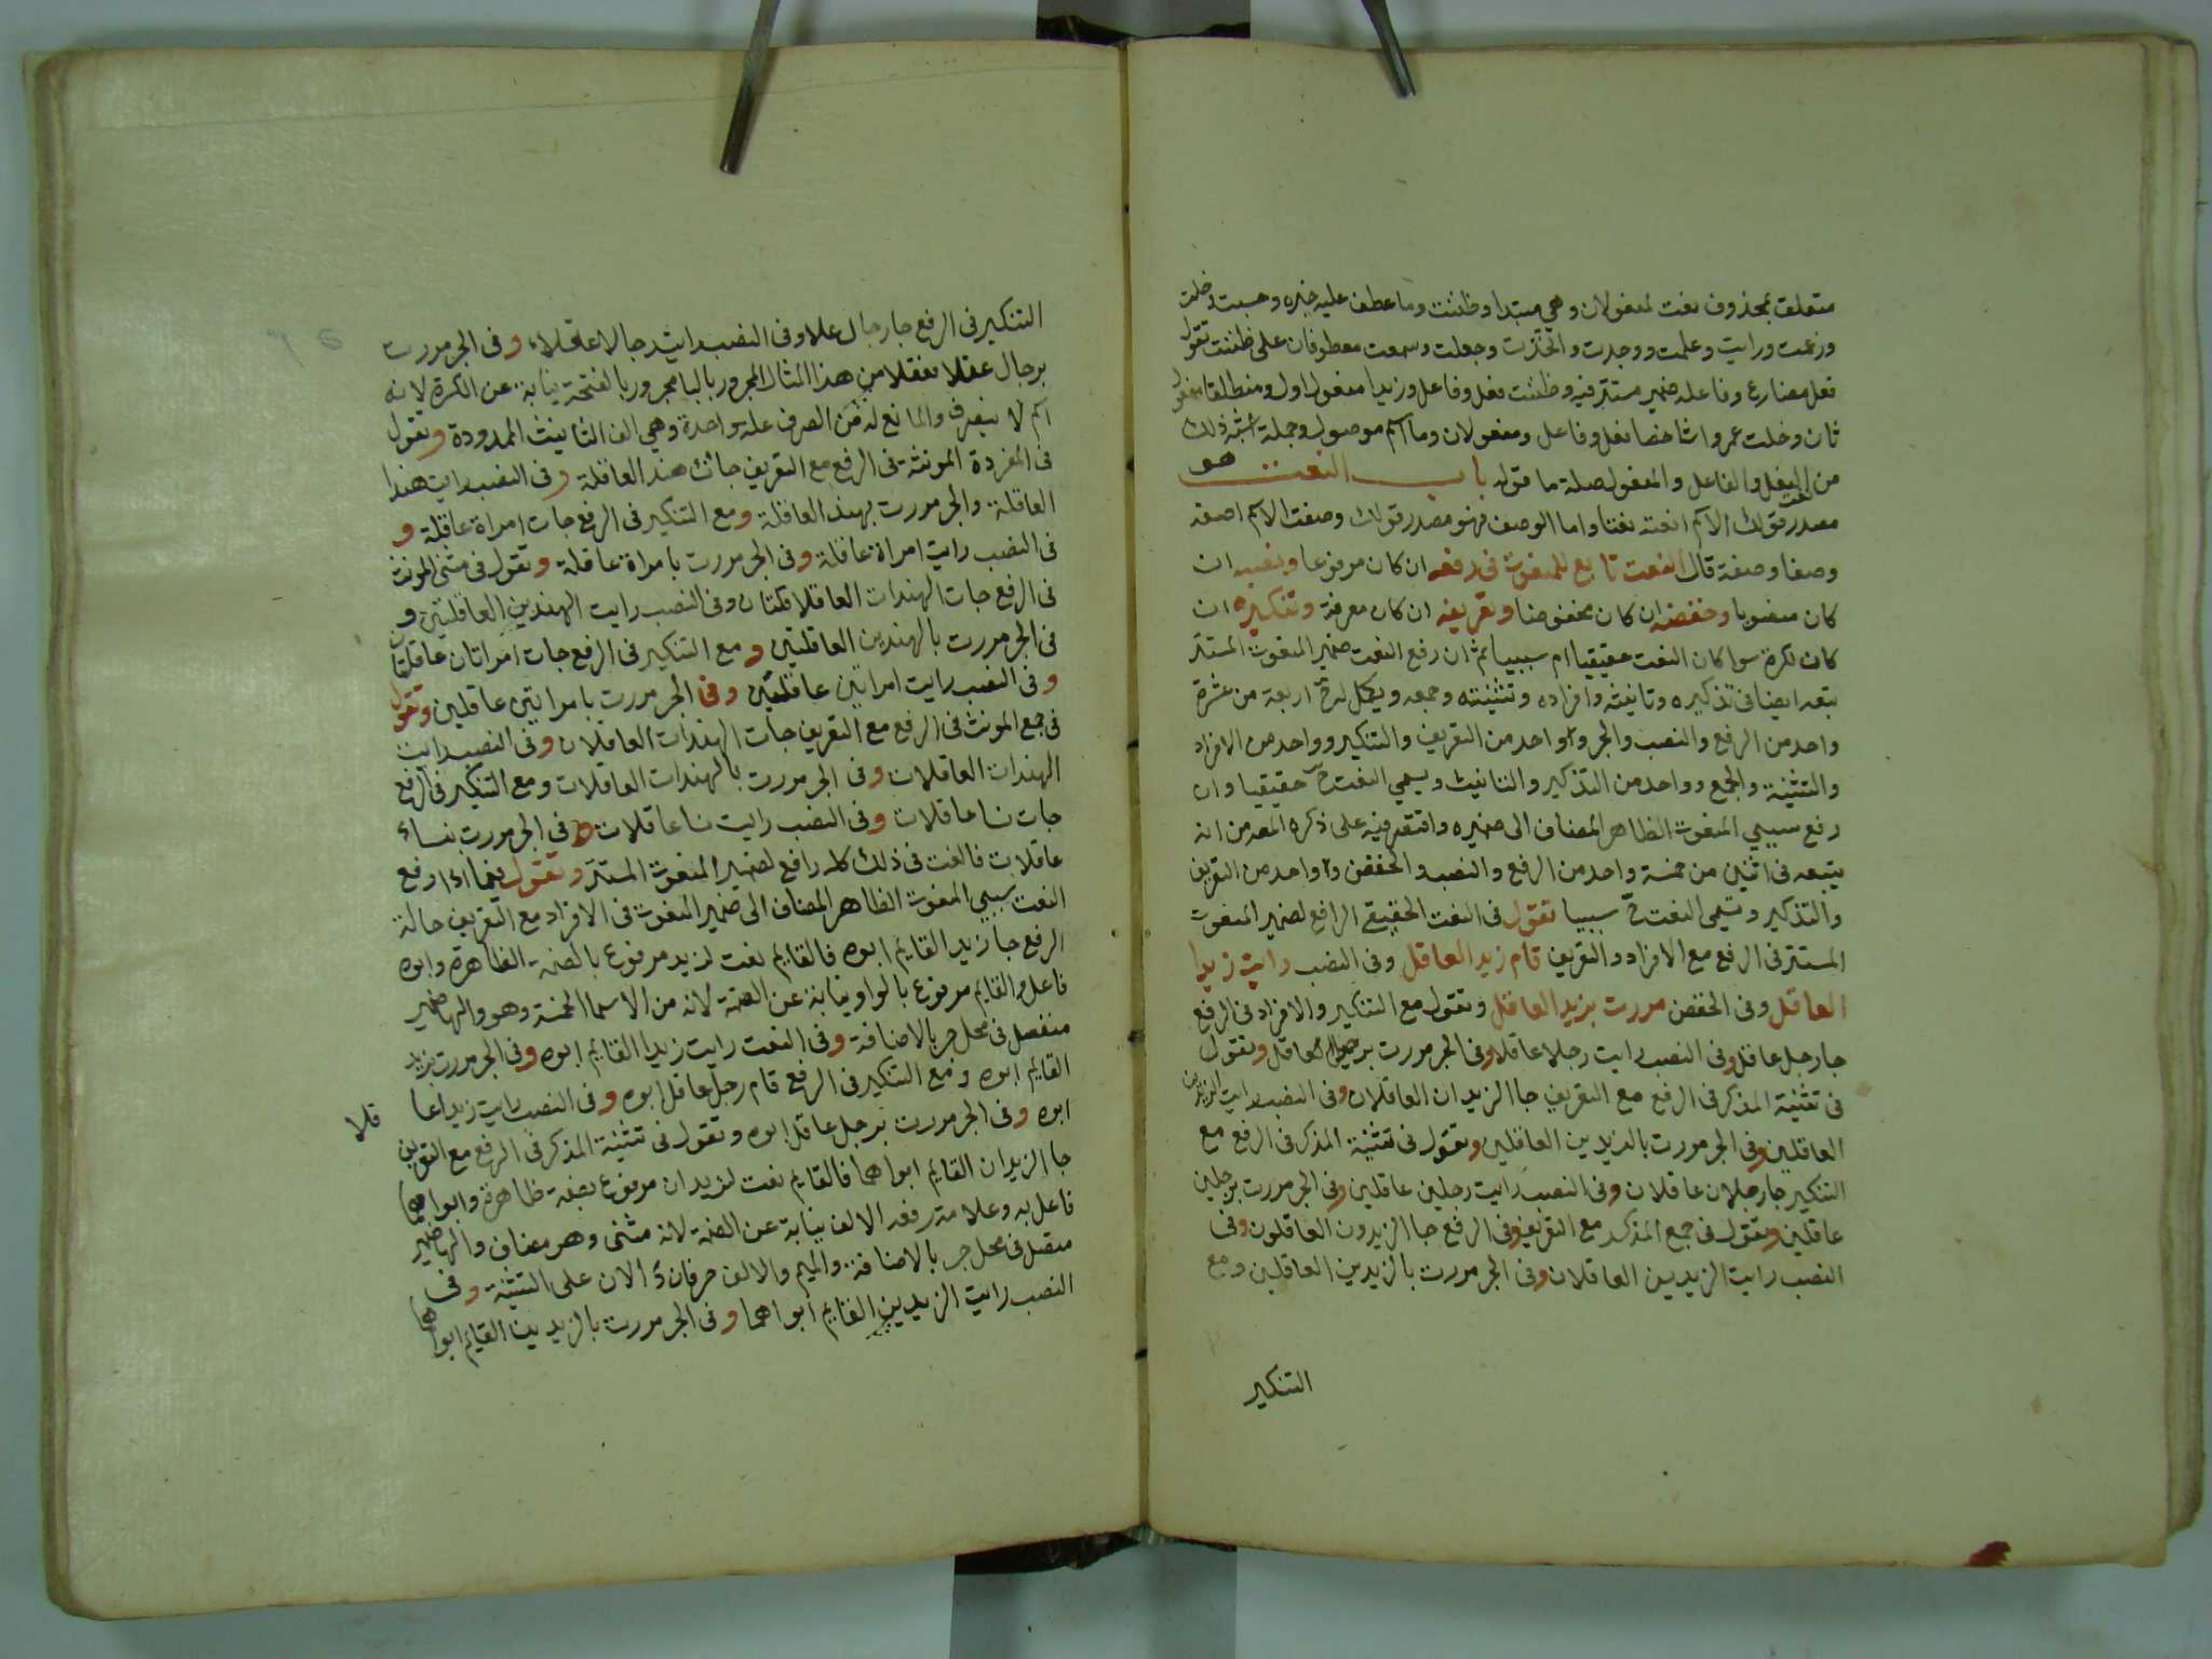 متعلق بمحذوف نعت لمفعولان وهي مبتدا وظننت وما عطف عليه خبره وحسبت وخلت
وزعمت ورايت وعلمت ووجدت واتخذت وجعلت وسمعت معطوفان على ظننت تقول
فعل مضارع وفاعله ضمير مستتر فيه وظننت فعل وفاعل وزيدا مفعول اول ومنطلقا مفعول
ثان وخلت عمروا شاخصا فعل وفاعل ومفعولان وما اسم موصول وجملة اشبه ذلك
من الفعل والفاعل والمفعول صلة ما قوله باب النعت هو
مصدر قولك نعت الاسم انعته نعتا واما الوصف فهو مصدر قولك وصفت الاسم اصفه
وصفا وصفة قال النعت تابع للمنعوت في رفعه ان كان مرفوعا ونصبه ان
كان منصوبا وخفضه ان كان مخفوضا وتعريفه ان كان معرفة وتنكيره ان
كان نكرة سوا كان النعت حقيقيا ام سببيا ثم ان رفع النعت ضمير المنعوت المستتر
يتبعه ايضا في تذكيره وتانيثه وافراده وتثنيته وجمعه ويكمل له ح اربعة من عشرة
واحد من الرفع والنصب والجر وواحد من التعريف والتنكير وواحد من الافراد
والتثنية والجمع وواحد من التذكير والتانيث ويسمي النعت ح حقيقيا وان
رفع سببي المنعوت الظاهر المضاف الى ضميره واقتصر فيه على ذكره المص من انه
يتبعه في اثنين من خمسة واحد من الرفع والنصب والخفض وواحد من التعريف
والتذكير ويسمى النعت ح سببيا تقول في النعت الحقيقي الرافع لضمير المنعوت
المستتر في الرفع مع الافراد والتعريف قام زيد العاقل وفي النصب رايت زيدا
العاقل وفي الخفض مررت بزيد العاقل وتقول مع التنكير والافراد في الرفع
جا رجل عاقل وفي النصب رايت رجلا عاقلا وفي الجر مررت برجل عاقل وتقول
في تثنية المذكر في الرفع مع التعريف جا الزيدان العاقلان وفي النصب رايت الزيدين
العاقلين وفي الجر مررت بالزيدين العاقلين وتقول في تثنية المذكر في الرفع مع
التنكير جا رجلان عاقلان وفي النصب رايت رجلين عاقلين وفي الجر مررت برجلين
عاقلين وتقول في جمع المذكر مع التعريف وفي الرفع جا الزيدون العاقلون وفي
النصب رايت الزيدين العاقلان وفي الجر مررت بالزيدين العاقلين ومع
التنكير
التنكير في الرفع جا رجال عقلا وفي النصب رايت رجالا عاقلاء وفي الجر مررت
برجال عقلا فعقلا من هذا المثال المجرور بالبا مجرور بالفتحة نيابة عن الكسرة لانه
اسم لا ينصرف والمانع له من الصرف علة واحدة وهي الف التانيث الممدودة وتقول
في المفردة المونثة في الرفع مع التعريف جات هند العاقلة وفي النصب رايت هندا
العاقلة والجر مررت بهند العاقلة ومع التنكير في الرفع جات امراة عاقلة و
في النصب رايت امراة عاقلة وفي الجر مررت بامراة عاقلة وتقول في مثنى المونث
في الرفع جات الهندان العاقلتان وفي النصب رايت الهندين العاقلتين و
في الجر مررت بالهندين العاقلتين ومع التنكير في الرفع جات امراتان عاقلتان
وفي النصب رايت امراتين عاقلتين وفي الجر مررت بامراتين عاقلين وتقول
في جمع المونث في الرفع مع التعريف جات الهندات العاقلات وفي النصب رايت
الهندات العاقلات وفي الجر مررت بالهندات العاقلات ومع التنكير في الرفع
جات نسا عاقلات وفي النصب رايت نسا عاقلات وفي الجر مررت بنساء
عاقلات فالنعت في ذلك كله رافع لضمير المنعوت المستتر وتقول فيما اذا رفع
النعت سببي المنعوت الظاهر المضاف الى ضمير المنعوت في الافراد مع التعريف حالة
الرفع جا زيد القايم ابوه فالقايم نعت لزيد مرفوع بالضمة الظاهرة وابوه
فاعل والقايم مرفوع بالواو نيابة عن الضمة لانه من الاسما الخمسة وهو والها ضمير
منفصل في محل جر بالاضافة وفي النعت رايت زيدا القايم ابوه وفي الجر مررت بزيد
القايم ابوه ومع التنكير في الرفع قام رجل عاقل ابوه وفي النصب رايت زيدا عا
قلا
ابوه وفي الجر مررت برجل عاقل ابوه وتقول في تثنية المذكر في الرفع مع التعريف
جا الزيدان القايم ابواهما فالقايم نعت لزيدان مرفوع بضمة ظاهرة وابواهما
فاعل به وعلامة رفعه الالف نيابة عن الضمة لانه مثنى وهو مضاف والها ضمير
متصل في محل جر بالاضافة والميم والالف حرفان دالان على التثنية وفي
النصب رايت الزيدين القايم ابواهما وفي الجر مررت بالزيدين القايم ابواهما